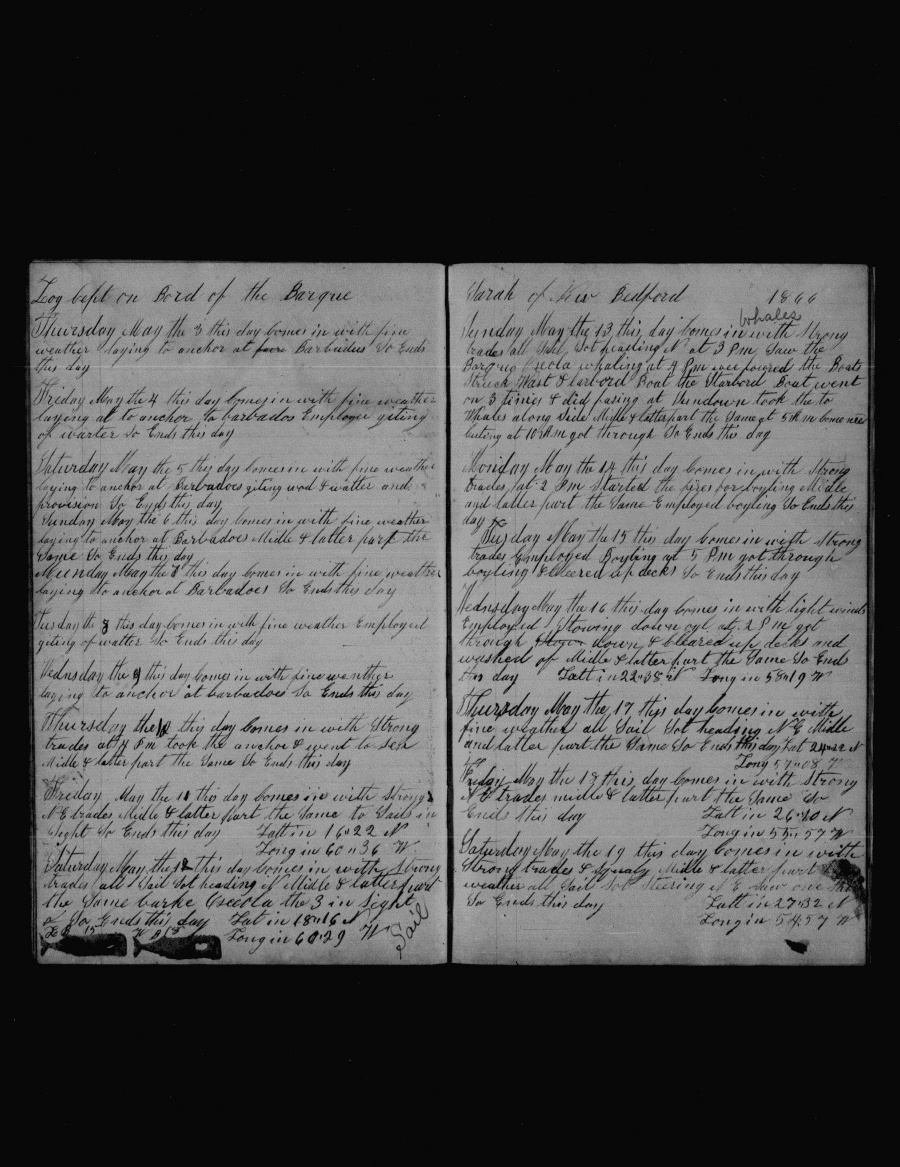 Log kept on Bord of the Barque
Thursday May the 3 this day comes in with fine
weather laying to anchor at Barbadus So Ends
this day
Friday May the 4 this day comes in with fine weather
laying at to anchor to barbados Employee giting
of warter So Ends this day
Saturday May the 5 this day comes in with fine weather
laying to anchor at Barbadoes giting wod & watter and
provision So Ends this day
Sunday May the 6 this day comes in with fine weather
laying to anchor at Barbadoes Midle & latter part the
Same So Ends this day
Munday May the 7 this day comes in with fine weather
laying to anchor at Barbadoes So Ends this day
Tuesday the 8 this day comes in with fine weather Employed
giting of watter So Ends this day
Wednesday the 9 this day comes in with fine weather
laying to anchor at barbadoes So Ends this day
Thursday the 10 this day comes in with Strong
trades at 4 Pm took the anchor & went to sea
Midle & latter part the Same So Ends this day
Friday May the 11 this day comes in with Strong
N E trades Midle & latter part the Same to Sails in
Sight So Ends this day Latt in 16 22 N
Long in 60 36 W
Saturday May the 12 this day comes in with Strong
trades all Sail Sot heading N Midle & latter part
the Same barke Osceola the 3 in Sight
So Ends this day Lat in 18 16 N
Long in 60 29 W
Sail
Sarah of New Bedford 1866
whales
Sunday May the 13 this day comes in with Strong
trades all Sail Sot heading N at 3 Pm Saw the
Barque Oseola whaling at 4 Pm we lowered the Boats
Struck Wast & larbord Boat the Starbord Boat went
on 3 times & did at Sundown took the to
Whales along Side Midle & latter part the Same at 5 Am
cuting at 10 Am got through So Ends this day
Monday May the 14 this day comes in with Strong
trades at 2 Pm Started the fires for boyling Midle
and latter part the Same Employed boyling So Ends this
day
Tusday May the 15 this day comes in with Strong
trades Employed Boyling at 5 Pm got through
boyling & cleered up decks So Ends this day
Wednesday May the 16 this day comes in with light winds
Employed Stowing down oyl at 2 Pm got
through down & cleared up decks and
washed of Midle & latter part the Same So Ends
this day Latt in 22 38 N Long in 58 19 W
Thursday May the 17 this day comes in with
fine weather all Sail Sot heading N E Midle
and latter part the Same So Ends this day Lat 24 22 N
Long 57 08 W
Friday May the 18 this day comes in with Strong
N E trades midle & latter part the Same So
Ends this day Latt in 26 10 N
Long in 55 57 W
Saturday May the 19 this day comes in with
Strong trades & Squaly Midle & latter part
weather all Sail Sot Steering N E saw one
So Ends this day Latt in 27 32 N
Long in 54 57 W